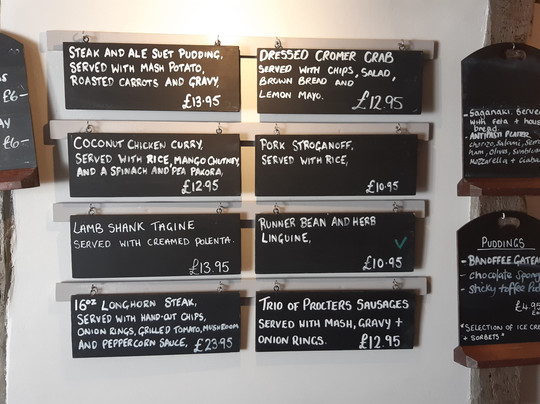 £6-
AY
£6-
STEAK AND ALE SUET PUDDING,
SERVED WITH MASH POTATO,
ROASTED CARROTS AND GRAVY,
£13.95
DRESSED CROMER CRAB
SERVED WITH CHIPS, SALAD,
BROWN BREAD AND
LEMON MAYO.
£12.95
COCONUT CHICKEN CURRY,
SERVED WITH RICE, MANGO CHUTNEY,
AND A SPINACH AND PEA PAKORA,
£12.95
PORK STROGANOFF,
SERVED WITH RICE,
£10.95
LAMB SHANK TAGINE
SERVED WITH CREAMED POLENTA.
£13.95
RUNNER BEAN AND HERB
LINGUINE,
£10.95
16oz LONGHORN STEAK,
SERVED WITH HAND-CUT CHIPS,
ONION RINGS, GRILLED TOMATO, MUSHROOM
AND PEPPERCORN SAUCE, £23.95
TRIO OF PROCTERS SAUSAGES
SERVED WITH MASH, GRAVY +
ONION RINGS. £12.95
- Saganaki. Serve
with feta + hous
bread.
- ANTIPASTI PLATTER
chorizo, Salami, Ser
Ham, Olives, Sunblus
Mozzarella + Ciaba
PUDDINGS
- BANOFFEE GATEA
- chocolate spong
- sticky toffee Pud
£4.95
*SELECTION OF ICE CRE
+ SORBETS*